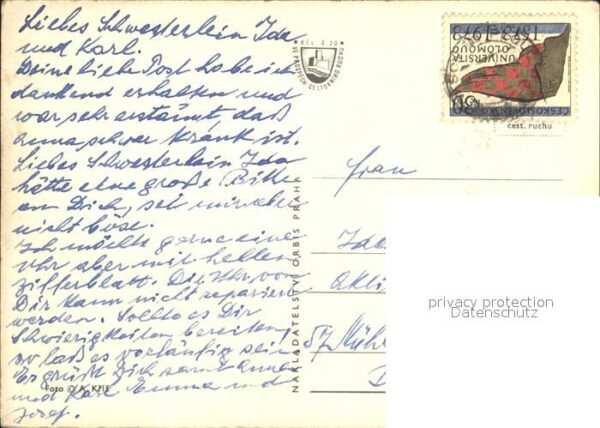 Liebes Schwesterlein Ida
und Karl.
Deine liebe Post habe ich
dankend erhalten und
war sehr erstaunt, daß
Anna schwer krank ist.
Liebes Schwesterlein Ida
hätte eine große Bitte
an Dich, sei mir aber
nicht böse.
Ich möchte gerne eine
Uhr aber mit hellen
Zifferblatt. Die Uhr von
Dir kann nicht repariert
werden. Sollte es Dir
Schwierigkeiten bereiten,
so laß es vorläufig sein
Es grüßt Dich samt Anna
und Karl Emma und
Josef.
Foto © A. Kříž
NAKLADATELSTVÍ ORBIS PRAH
VE PROSPĚCH CESTOVNÍHO RUCHU
KČS 0,20
1573-1973
UNIVERSITA
OLOMOUC
ČESKOSLOVENSKO
30
cest. ruchu
Frau
Ida
57 Mühl
D
privacy protection
Datenschutz